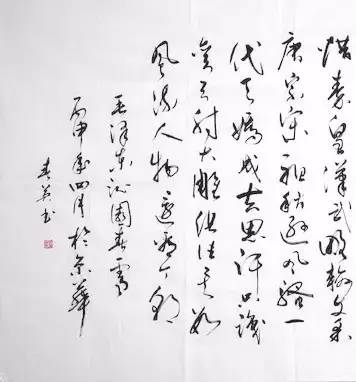 惜秦皇漢武略輸文采
唐宗宋祖稍逊风骚一
代天嬌成吉思汗只識
弯弓射大雕俱往矣数
风流人物還看今朝
毛泽东沁園春雪
丙申年四月於京華
英书